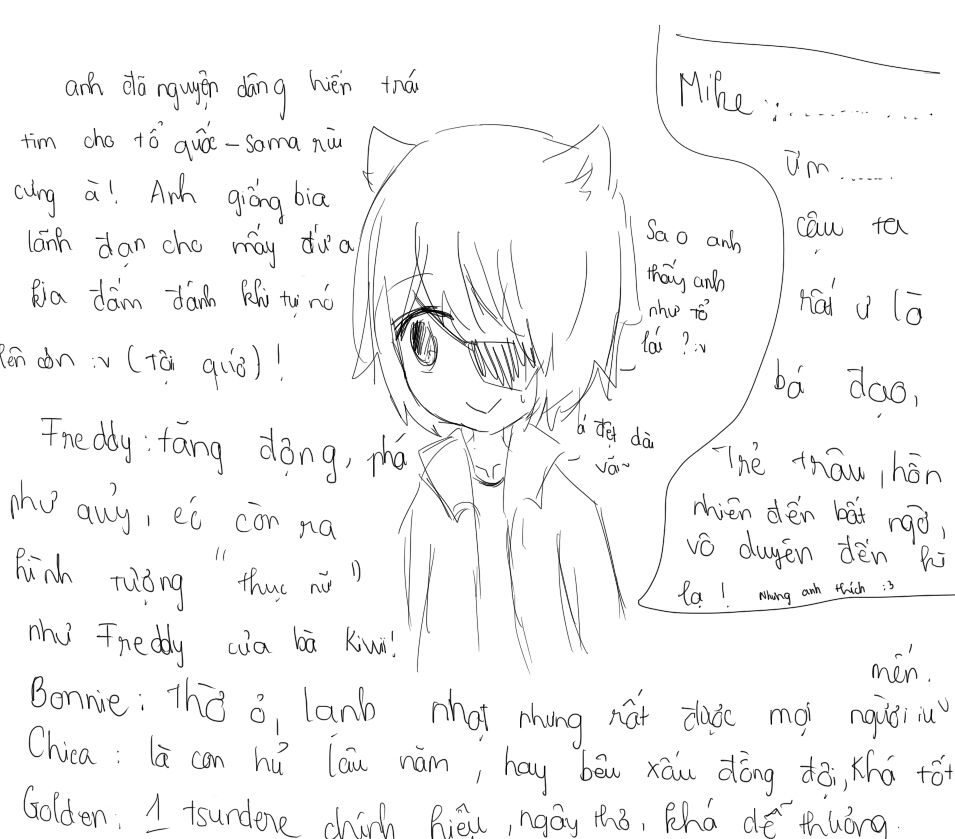 anh đã nguyện dâng hiến trái
tim cho tổ quốc - sama rùi
cưng à! Anh giống bia
lãnh đạn cho mấy đứa
kia đấm đánh khi tụi nó
lên cơn :v (Tội quớ)!
Freddy: tăng động, phá
như quỷ, éc còn ra
hình tượng "thục nữ"
như Freddy của bà Kiwi!
Bonnie: Thờ ơ, lạnh nhạt nhưng rất được mọi người iu
mến.
Chica: là con hủ lâu năm, hay bêu xấu đồng đội, Khá tốt
Golden: 1 tsundere chính hiệu, ngây thơ, khá dễ thương.
Sao anh
thấy anh
như tổ
lái? :v
á đẹt dài
vãi~
Mike: ...............
Ừm......
cậu ta
rất ư là
bá đạo,
Trẻ trâu, hồn
nhiên đến bất ngờ,
vô duyên đến kì
lạ! Nhưng anh thích :3